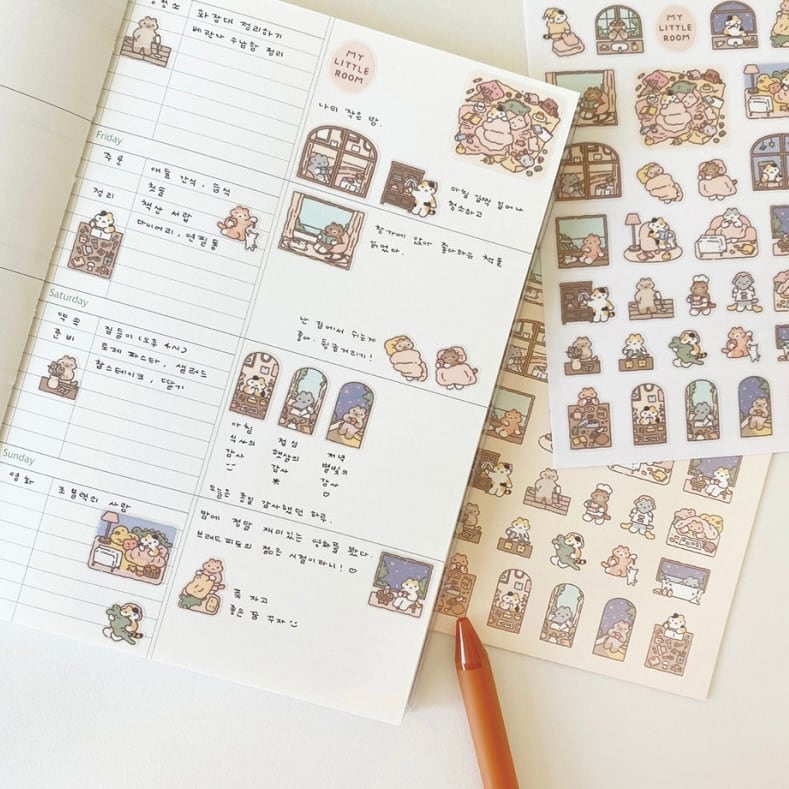 청소
화장대 정리하기
베란다 수납함 정리
Friday
주문
애들 간식, 음식
정리
창틀
책상 서랍
다이어리,
Saturday
약속
준비
로제 파스타, 샐러드
함스테이크, 딸기
Sunday
영화
조별력의 사랑
MY
LITTLE
ROOM
나의 작은 방.
아침 일찍 일어나
청소하고
창가에 앉아 좋다하는 책을
읽었다.
난 집에서 쉬는게
좋아. 뒹굴거리기!
아침
식사의
감사
점심
햇살의
감사
저녁
별빛의
감사
모든 것이 감사했던 하루.
밤에 정말 재미있는 영화를 봤다.
브래드피트의 젊은 시절이라니!
푹 자고
예쁜 꿈 꾸자
MY
LITTLE
ROOM